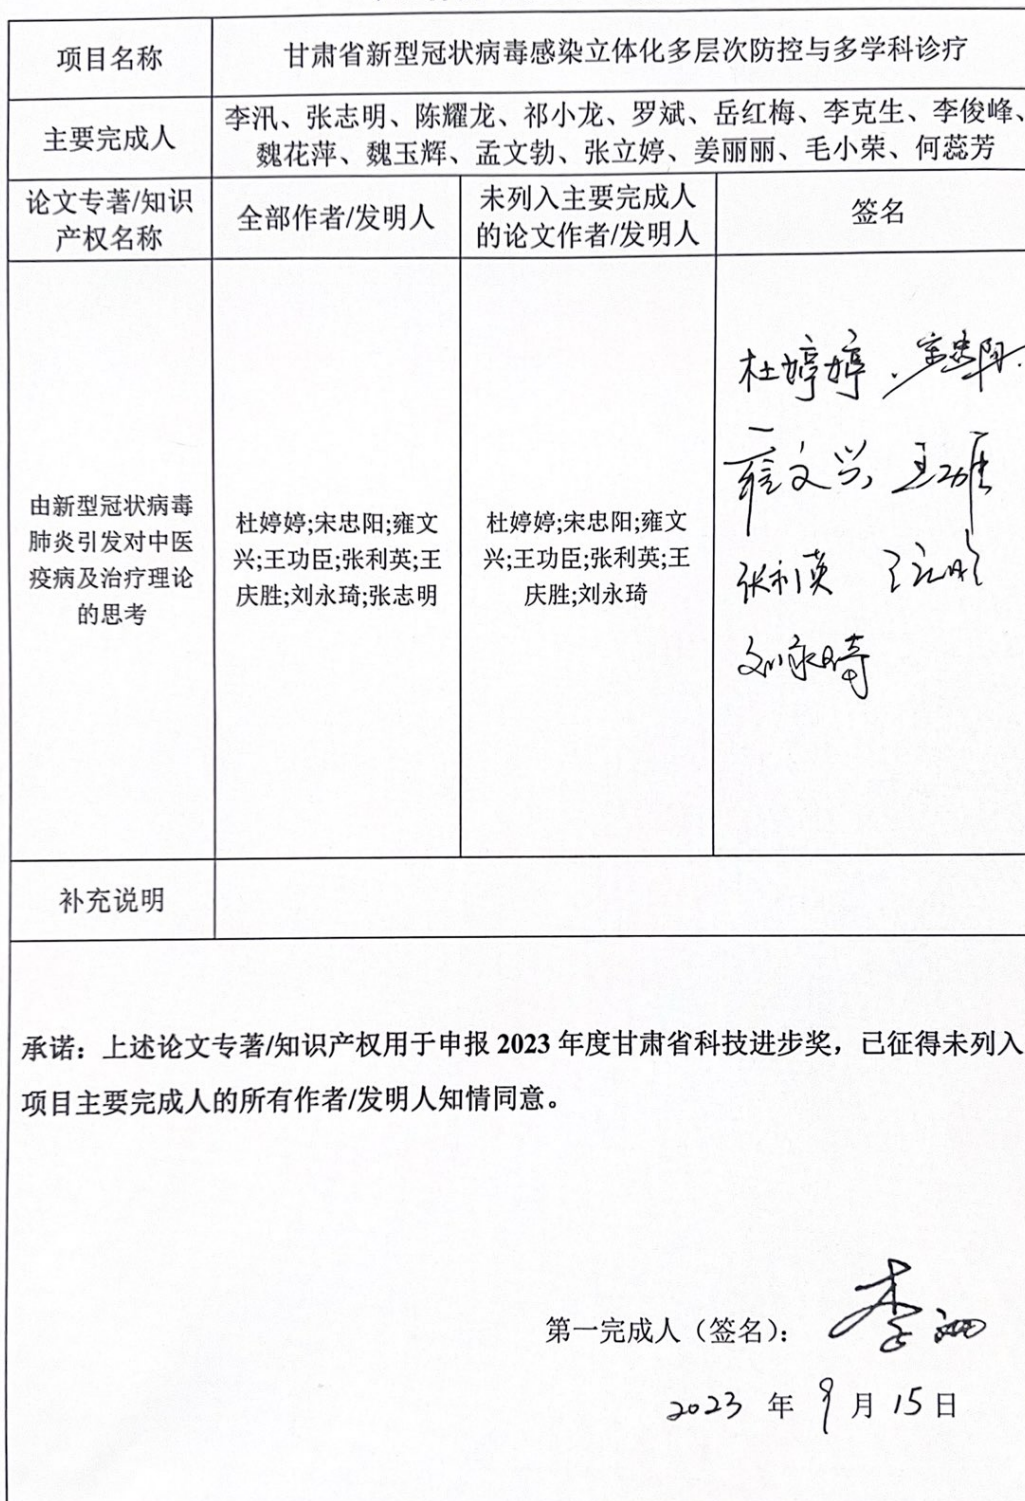 项目名称
甘肃省新型冠状病毒感染立体化多层次防控与多学科诊疗
主要完成人
李汛、张志明、陈耀龙、祁小龙、罗斌、岳红梅、李克生、李俊峰、
魏花萍、魏玉辉、孟文勃、张立婷、姜丽丽、毛小荣、何蕊芳
论文专著/知识
产权名称
全部作者/发明人
未列入主要完成人
的论文作者/发明人
签名
由新型冠状病毒
肺炎引发对中医
疫病及治疗理论
的思考
杜婷婷;宋忠阳;雍文
兴;王功臣;张利英;王
庆胜;刘永琦;张志明
杜婷婷;宋忠阳;雍文
兴;王功臣;张利英;王
庆胜;刘永琦
杜婷婷、宋忠阳、
雍文兴、王功臣
张利英
刘永琦
补充说明
承诺：上述论文专著/知识产权用于申报 2023 年度甘肃省科技进步奖，已征得未列入
项目主要完成人的所有作者/发明人知情同意。
第一完成人（签名）： 李汛
2023 年 9 月 15 日